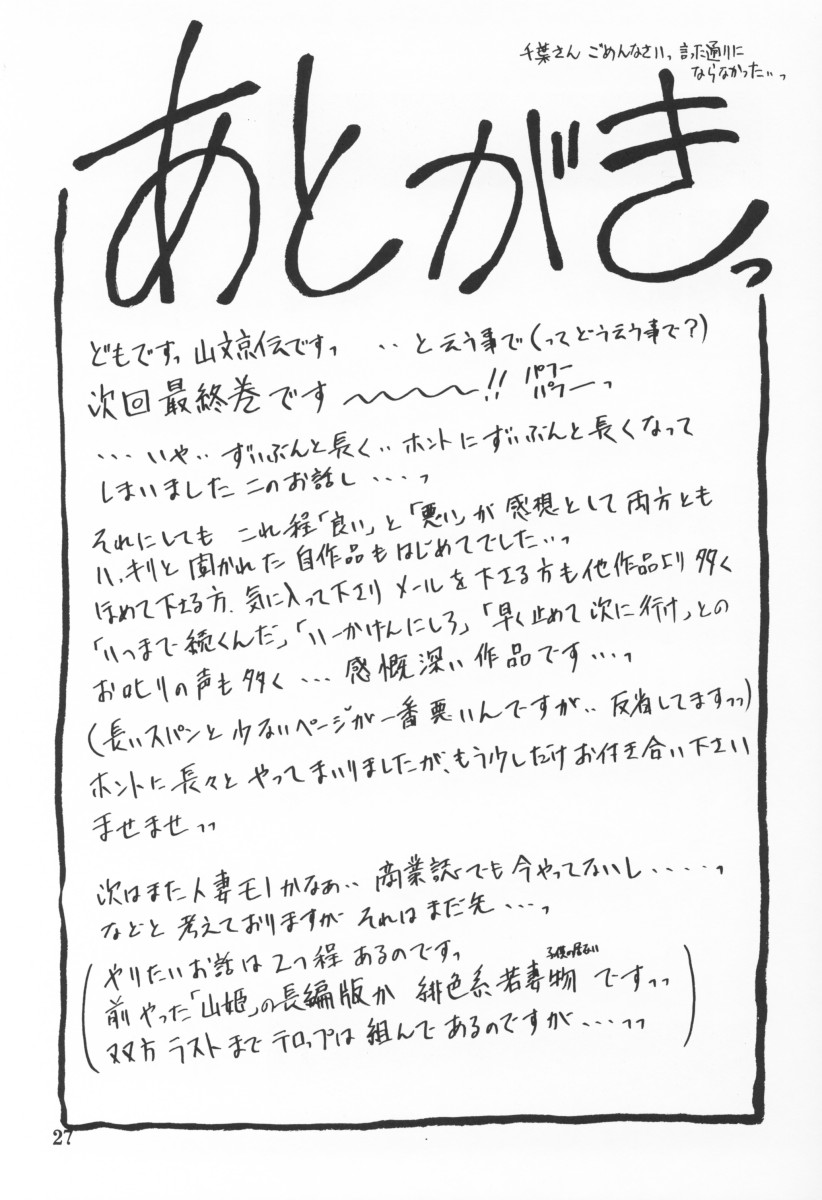 千葉さん ごめんなさいっ 言った通りに
ならなかった〃っ
あとがきっ
どもですっ 山文京伝ですっ ‥と云う事で(ってどう云う事で?)
次回最終巻です〜〜〜〜!! パフー
パフーっ
・・・いや‥ ずいぶんと長く‥ホントにずいぶんと長くなって
しまいましたこのお話し・・・っ
それにしても これ程「良い」と「悪い」が 感想として両方とも
ハッキリと聞かれた 自作品もはじめてでした‥っ
ほめて下さる方、気に入って下さり メールを下さる方も他作品より多く
「いつまで続くんだ」「いーかげんにしろ」「早く止めて次に行け」との
お叱りの声も多く ・・・ 感慨深い作品です・・・っ
(長いスパンと少ないページが一番悪いんですが‥ 反省してますっっ)
ホントに長々と やってまいりましたが、もう少しだけお付き合い下さい
ませませっっ
次はまた人妻モノかなぁ‥ 商業誌でも今やってないし・・・・・っ
などと 考えておりますが それはまだ先・・・っ
やりたいお話は2つ程あるのですっ
前やった「山姫」の長編版か 緋色系若妻物 ですっっ
双方ラストまでテロップは組んであるのですが・・・っっ
27